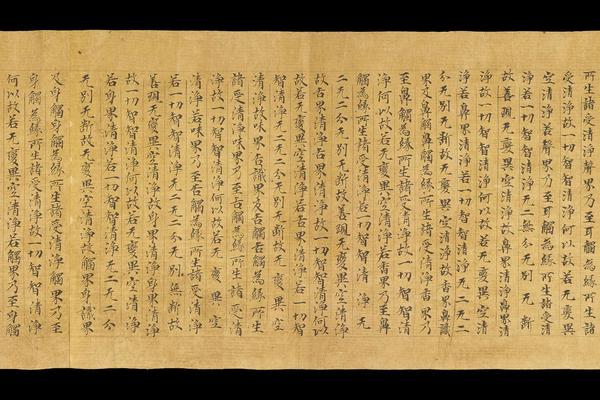 所生諸受清淨聲界乃至耳觸為緣所生諸
受清淨故一切智智清淨何以故若无變異
空清淨若聲界乃至耳觸為緣所生諸受清
淨若一切智智清淨无二無二分无別无斷
故善現无變異空清淨故鼻界清淨鼻界清
淨故一切智智清淨何以故若无變異空清
淨若鼻界清淨若一切智智清淨无二无二
分无別无斷故无變異空清淨故香界鼻識
界及鼻觸鼻觸為緣所生諸受清淨香界乃
至鼻觸為緣所生諸受清淨故一切智智清
淨何以故若无變異空清淨若香界乃至鼻
觸為緣所生諸受清淨若一切智智清淨无
二无二分无別无斷故善現无變異空清淨
故舌界清淨舌界清淨故一切智智清淨何以
故若无變異空清淨若舌界清淨若一切智
智清淨无二无二分无別无斷故无變異空
清淨故味界舌識界及舌觸舌觸為緣所生
諸受清淨味界乃至舌觸為緣所生諸受清
淨故一切智智清淨何以故若无變異空
清淨若味界乃至舌觸為緣所生諸受清淨
若一切智智清淨无二无二分无別無斷故
善現无變異空清淨故身界清淨身界清淨
故一切智智清淨何以故若无變異空清淨
若身界清淨若一切智智清淨无二无二分
无別无斷故无變異空清淨故觸界身識界
及身觸身觸為緣所生諸受清淨觸界乃至
身觸為緣所生諸受清淨故一切智智清淨
何以故若无變異空清淨若觸界乃至身觸